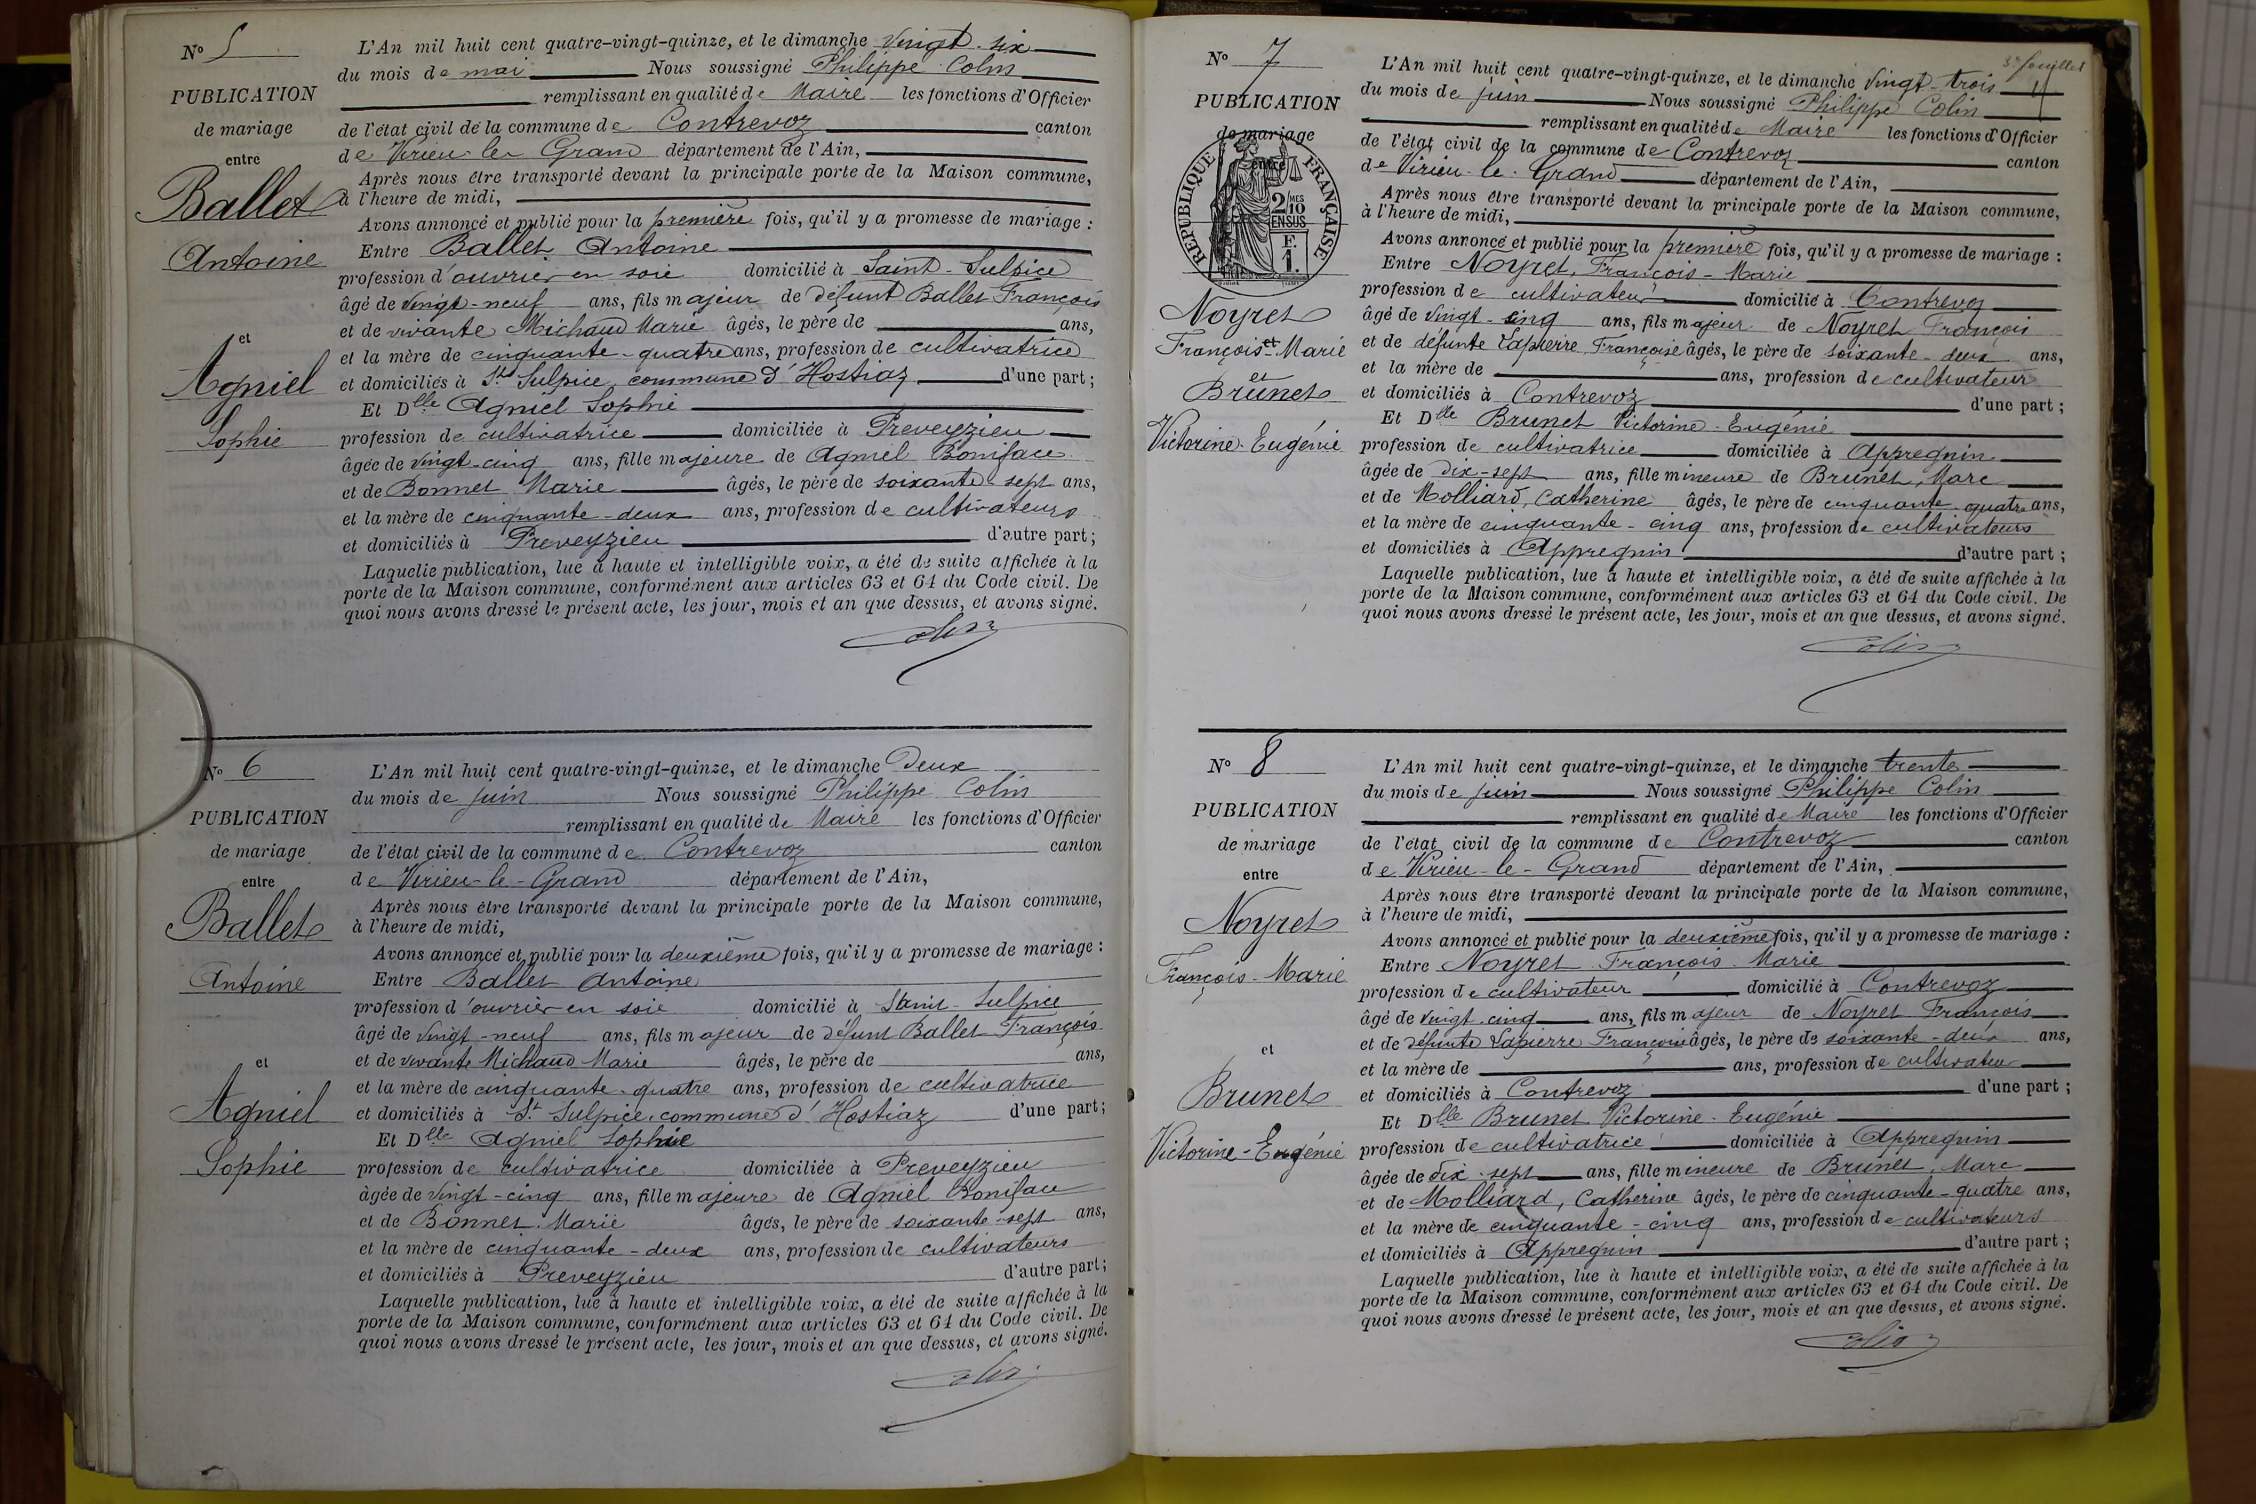 N° 5
PUBLICATION
de mariage
entre
Ballet
Antoine
et
Agniel
Sophie
L'An mil huit cent quatre-vingt-quinze, et le dimanche vingt-six
du mois de mai Nous soussigné Philippe Colin
remplissant en qualité de Maire les fonctions d'Officier
de l'état civil de la commune de Contrevoz canton
de Virieu-le-Grand département de l'Ain,
Après nous être transporté devant la principale porte de la Maison commune,
à l'heure de midi,
Avons annoncé et publié pour la première fois, qu'il y a promesse de mariage :
Entre Ballet Antoine
profession d'ouvrier en soie domicilié à Saint-Sulpice
âgé de vingt-neuf ans, fils majeur de défunt Ballet François
et de vivante Michaud Marie âgés, le père de ans,
et la mère de cinquante-quatre ans, profession de cultivatrice
et domiciliés à St Sulpice, commune d'Hostiaz d'une part ;
Et Dlle Agniel Sophie
profession de cultivatrice domiciliée à Preveyzieu
âgée de vingt-cinq ans, fille majeure de Agniel Boniface
et de Bonnet Marie âgés, le père de soixante-sept ans,
et la mère de cinquante-deux ans, profession de cultivateurs
et domiciliés à Preveyzieu d'autre part ;
Laquelle publication, lue à haute et intelligible voix, a été de suite affichée à la
porte de la Maison commune, conformément aux articles 63 et 64 du Code civil. De
quoi nous avons dressé le présent acte, les jour, mois et an que dessus, et avons signé.
Colin
N° 6
PUBLICATION
de mariage
entre
Ballet
Antoine
et
Agniel
Sophie
L'An mil huit cent quatre-vingt-quinze, et le dimanche Deux
du mois de juin Nous soussigné Philippe Colin
remplissant en qualité de Maire les fonctions d'Officier
de l'état civil de la commune de Contrevoz canton
de Virieu-le-Grand département de l'Ain,
Après nous être transporté devant la principale porte de la Maison commune,
à l'heure de midi,
Avons annoncé et publié pour la deuxième fois, qu'il y a promesse de mariage :
Entre Ballet Antoine
profession d'ouvrier en soie domicilié à Saint-Sulpice
âgé de vingt-neuf ans, fils majeur de défunt Ballet François
et de vivante Michaud Marie âgés, le père de ans,
et la mère de cinquante-quatre ans, profession de cultivatrice
et domiciliés à St Sulpice, commune d'Hostiaz d'une part ;
Et Dlle Agniel Sophie
profession de cultivatrice domiciliée à Preveyzieu
âgée de vingt-cinq ans, fille majeure de Agniel Boniface
et de Bonnet Marie âgés, le père de soixante-sept ans,
et la mère de cinquante-deux ans, profession de cultivateurs
et domiciliés à Preveyzieu d'autre part ;
Laquelle publication, lue à haute et intelligible voix, a été de suite affichée à la
porte de la Maison commune, conformément aux articles 63 et 64 du Code civil. De
quoi nous avons dressé le présent acte, les jour, mois et an que dessus, et avons signé.
Colin
3e feuillet
N° 7
PUBLICATION
de mariage
entre
REPUBLIQUE FRANÇAISE
2/10 MES
EN SUS
F.
1.
Noyret
François-Marie
et
Brunet
Victorine-Eugénie
L'An mil huit cent quatre-vingt-quinze, et le dimanche vingt-trois
du mois de juin Nous soussigné Philippe Colin
remplissant en qualité de Maire les fonctions d'Officier
de l'état civil de la commune de Contrevoz canton
de Virieu-le-Grand département de l'Ain,
Après nous être transporté devant la principale porte de la Maison commune,
à l'heure de midi,
Avons annoncé et publié pour la première fois, qu'il y a promesse de mariage :
Entre Noyret, François-Marie
profession de cultivateur domicilié à Contrevoz
âgé de vingt-cinq ans, fils majeur de Noyret François
et de défunte Lapierre Françoise âgés, le père de soixante-deux ans,
et la mère de ans, profession de cultivateur
et domiciliés à Contrevoz d'une part ;
Et Dlle Brunet Victorine-Eugénie
profession de cultivatrice domiciliée à Appregnin
âgée de dix-sept ans, fille mineure de Brunet, Marc
et de Molliard, Catherine âgés, le père de cinquante-quatre ans,
et la mère de cinquante-cinq ans, profession de cultivateurs
et domiciliés à Appregnin d'autre part ;
Laquelle publication, lue à haute et intelligible voix, a été de suite affichée à la
porte de la Maison commune, conformément aux articles 63 et 64 du Code civil. De
quoi nous avons dressé le présent acte, les jour, mois et an que dessus, et avons signé.
Colin
N° 8
PUBLICATION
de mariage
entre
Noyret
François-Marie
et
Brunet
Victorine-Eugénie
L'An mil huit cent quatre-vingt-quinze, et le dimanche trente
du mois de juin Nous soussigné Philippe Colin
remplissant en qualité de Maire les fonctions d'Officier
de l'état civil de la commune de Contrevoz canton
de Virieu-le-Grand département de l'Ain,
Après nous être transporté devant la principale porte de la Maison commune,
à l'heure de midi,
Avons annoncé et publié pour la deuxième fois, qu'il y a promesse de mariage :
Entre Noyret François-Marie
profession de cultivateur domicilié à Contrevoz
âgé de vingt-cinq ans, fils majeur de Noyret François
et de défunte Lapierre Françoise âgés, le père de soixante-deux ans,
et la mère de ans, profession de cultivateur
et domiciliés à Contrevoz d'une part ;
Et Dlle Brunet Victorine-Eugénie
profession de cultivatrice domiciliée à Appregnin
âgée de dix-sept ans, fille mineure de Brunet, Marc
et de Molliard, Catherine âgés, le père de cinquante-quatre ans,
et la mère de cinquante-cinq ans, profession de cultivateurs
et domiciliés à Appregnin d'autre part ;
Laquelle publication, lue à haute et intelligible voix, a été de suite affichée à la
porte de la Maison commune, conformément aux articles 63 et 64 du Code civil. De
quoi nous avons dressé le présent acte, les jour, mois et an que dessus, et avons signé.
Colin